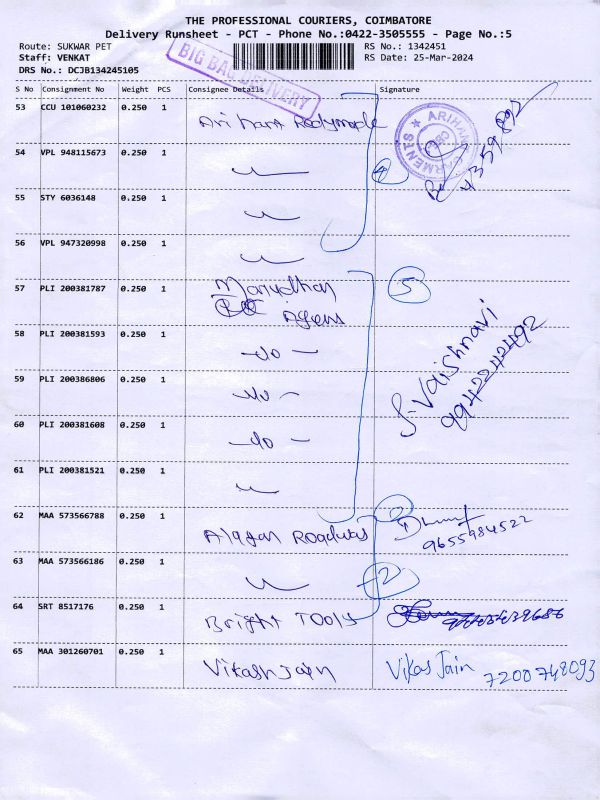 THE PROFESSIONAL COURIERS, COIMBATORE
Delivery Runsheet - PCT - Phone No.:0422-3505555 - Page No.:5
Route: SUKWAR PET RS No.: 1342451
Staff: VENKAT RS Date: 25-Mar-2024
DRS No.: DCJB134245105
BIG BAG DELIVERY
S No Consignment No Weight PCS Consignee Details Signature
53 CCU 101060232 0.250 1 Arihant Redymade
ARIHANT GARMENTS
54 VPL 948115673 0.250 1 4
55 STY 6036148 0.250 1
56 VPL 947320998 0.250 1
57 PLI 200381787 0.250 1 Marudhar 5
Agens
58 PLI 200381593 0.250 1 -do-
S. Vaishnavi
9942242492
59 PLI 200386806 0.250 1 -do-
60 PLI 200381608 0.250 1 -do-
61 PLI 200381521 0.250 1
62 MAA 573566788 0.250 1 Alagan Roadways
9655984522
63 MAA 573566186 0.250 1 2
64 SRT 8517176 0.250 1 Bright Tools
65 MAA 301260701 0.250 1 Vikash Jain Vikas Jain 7200748093